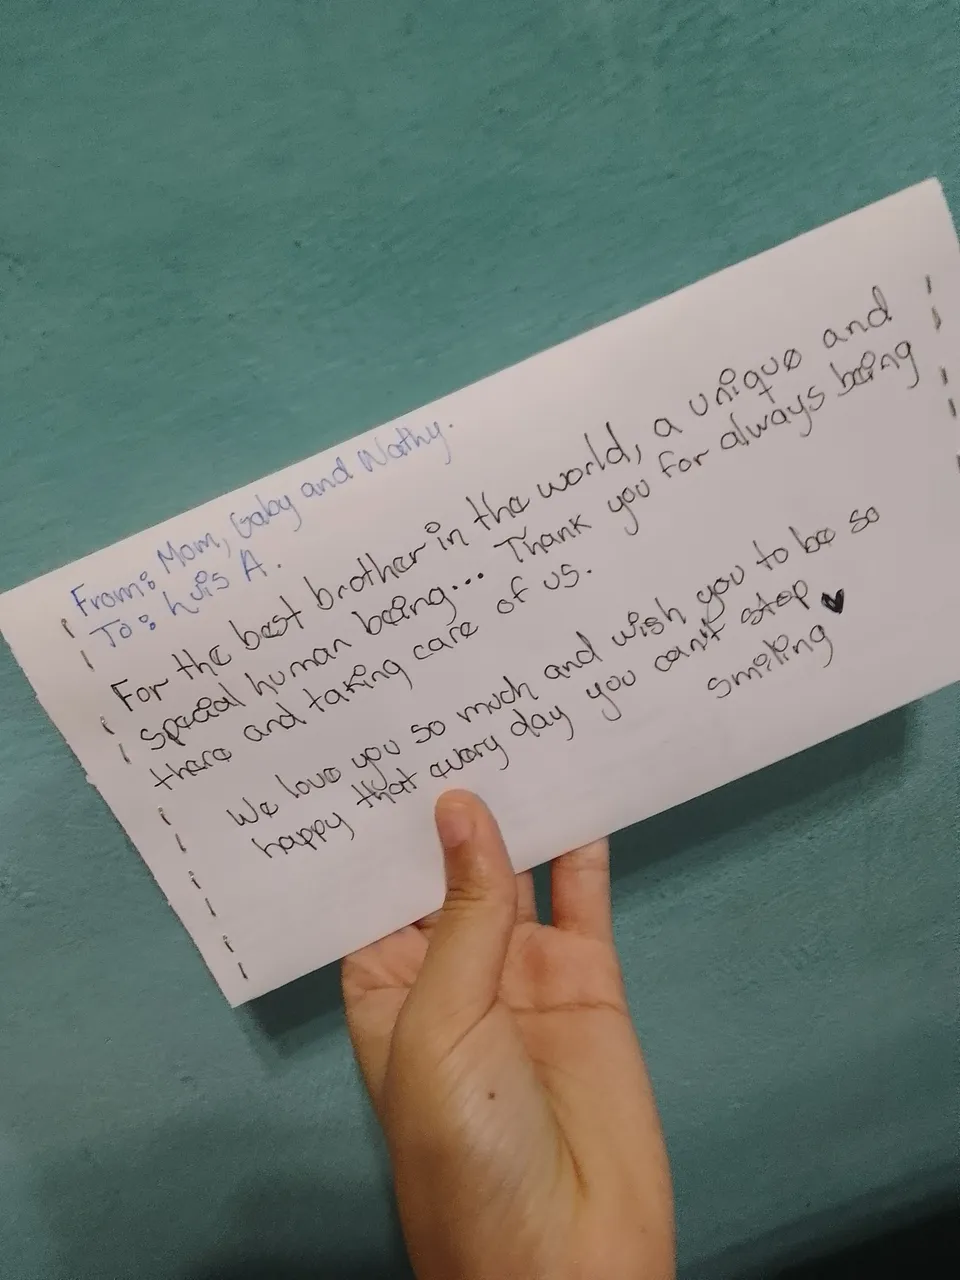 From: Mom, Gaby and Nathy.
To: Luis A.
For the best brother in the world, a unique and
special human being... Thank you for always being
there and taking care of us.
We love you so much and wish you to be so
happy that every day you can't stop
smiling ♥